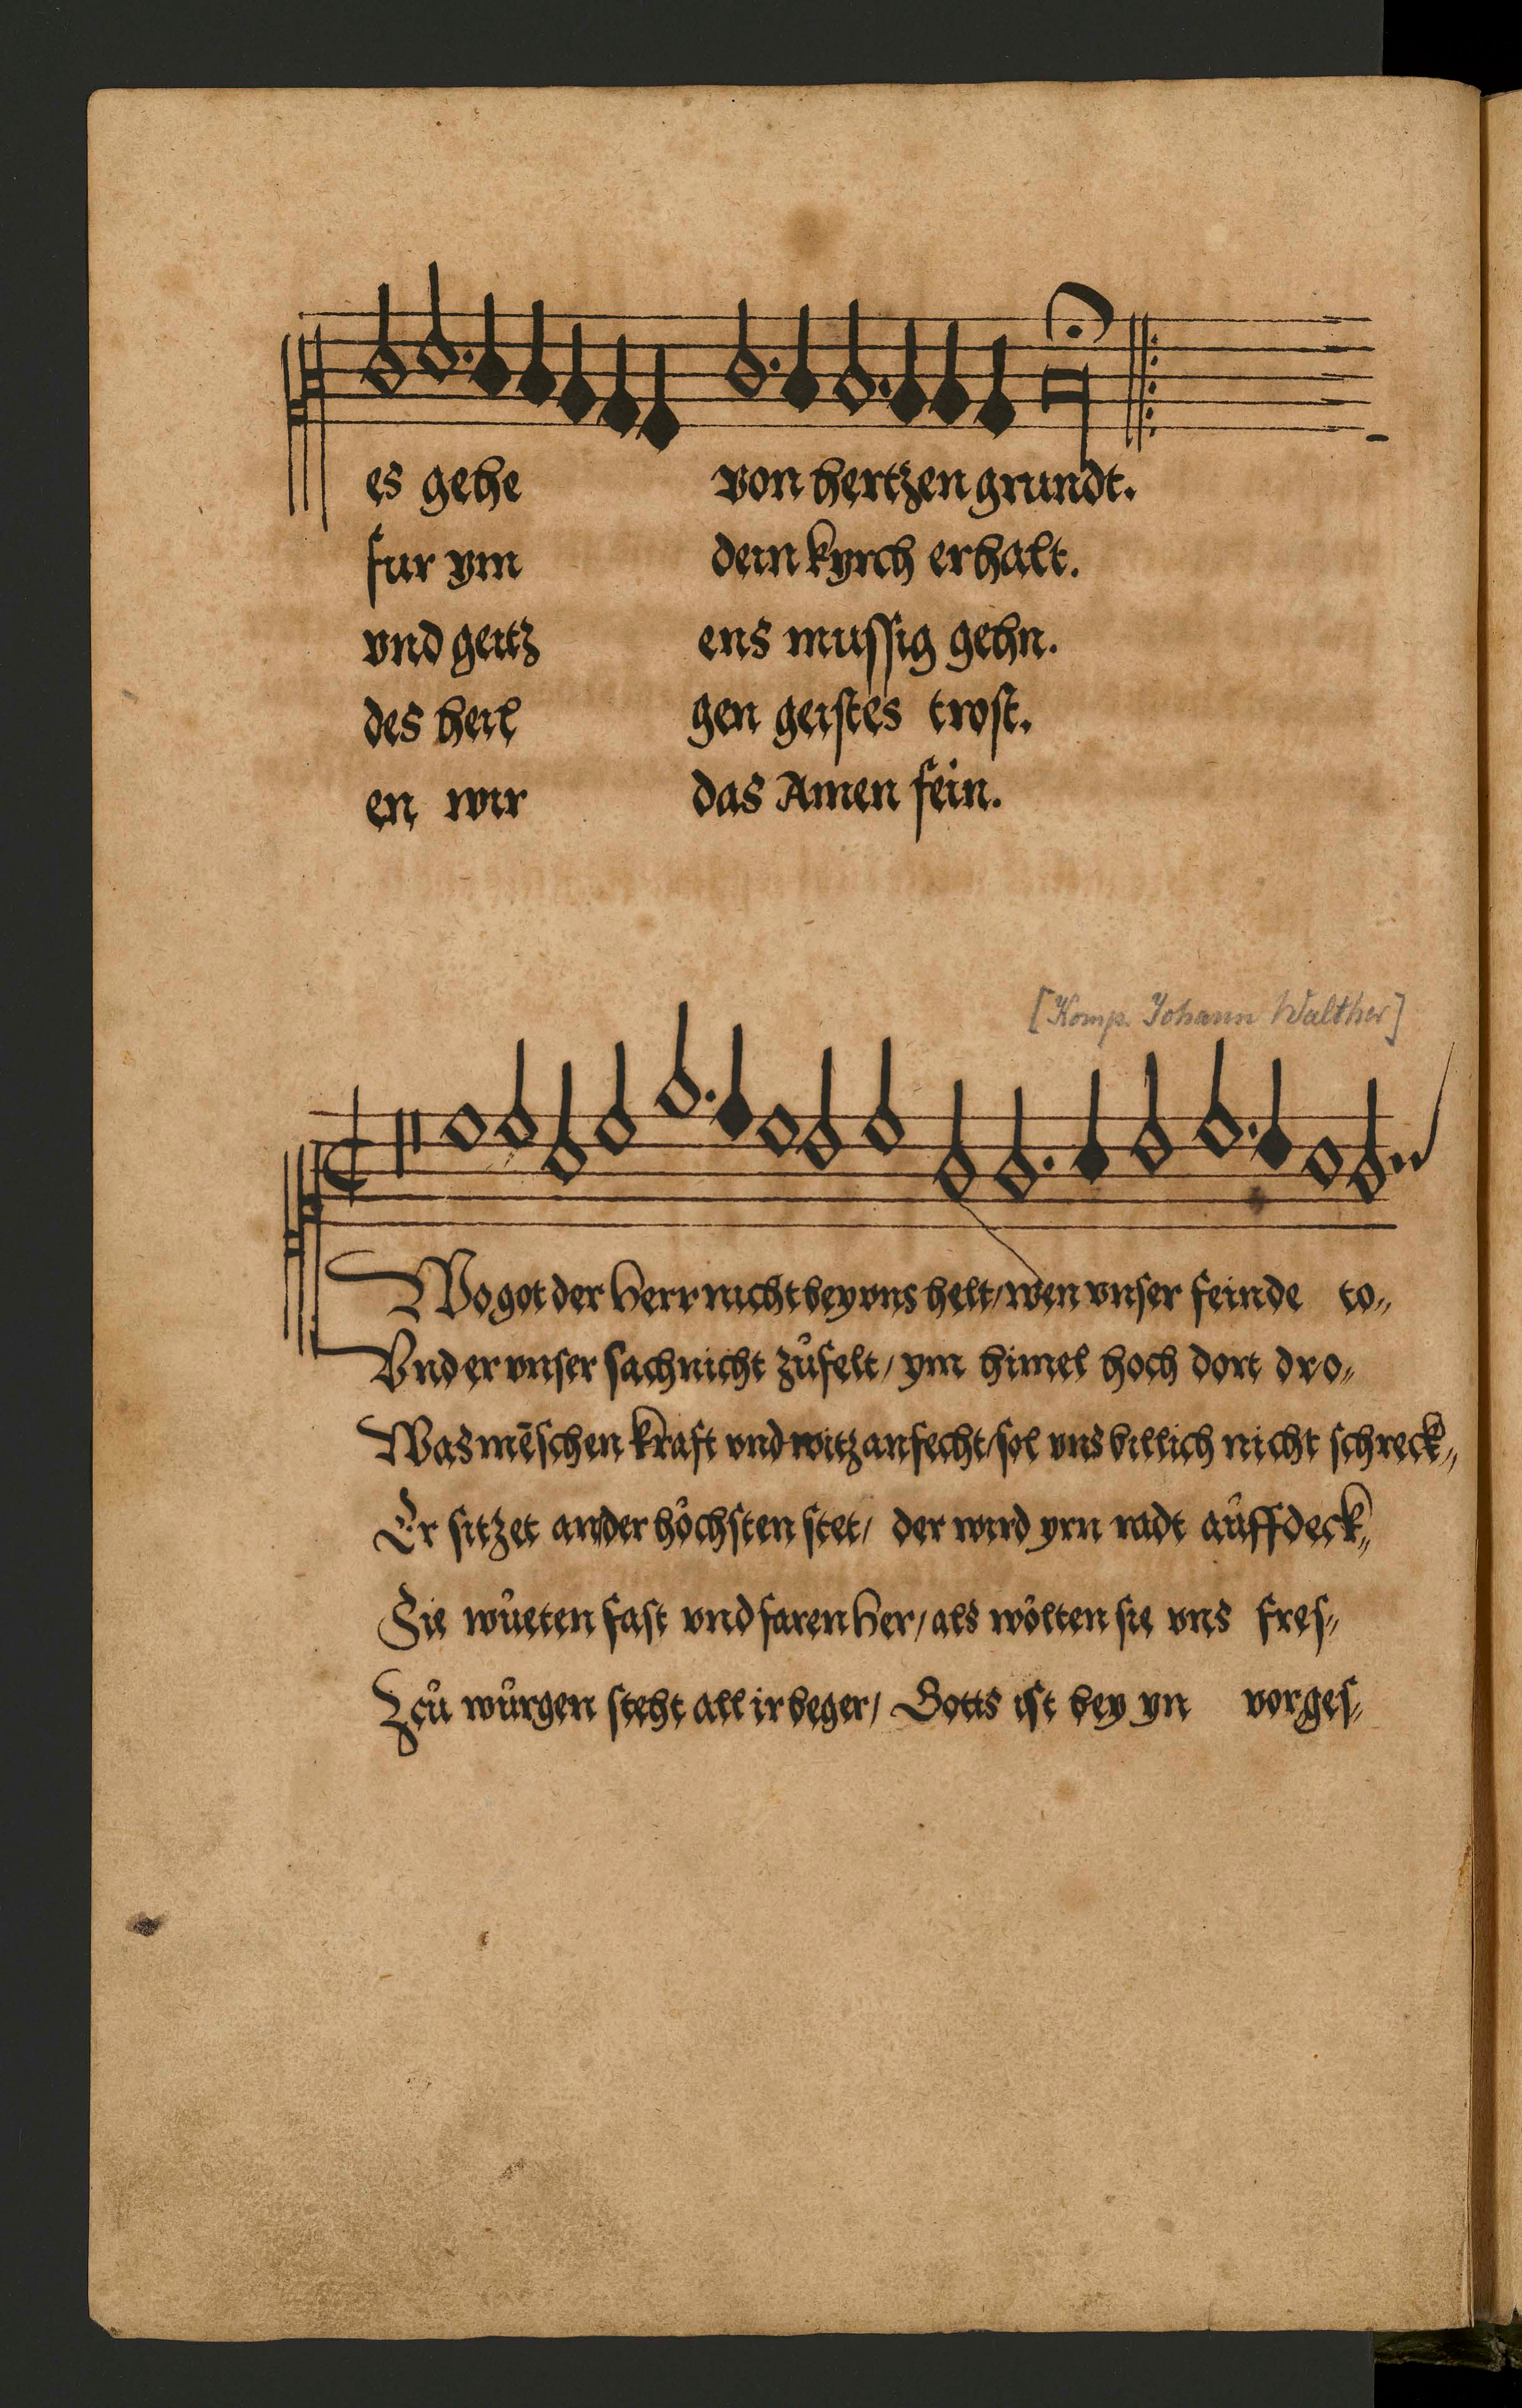 es gehe von hertzen grundt.
fur ym dein kyrch erhalt.
vnd geitz ens mussig gehn.
des heil gen geistes trost.
en wir das Amen fein.
[Komp. Johann Walther]
Wo got der herr nicht bey vns helt/ wen vnser feinde to„
Vnd er vnser sach nicht zůfelt/ ym himel hoch dort dro„
Was mēschen kraft vnd witz anfecht/ sol vns billich nicht schreck„
Er sitzet an der hőchsten stet/ der wird yrn radt aůffdeck„
Sie wůeten fast vnd faren her/ als wőlten sie vns fres„
Zců wůrgen steht all ir beger/ Gotts ist bey yn vorges„